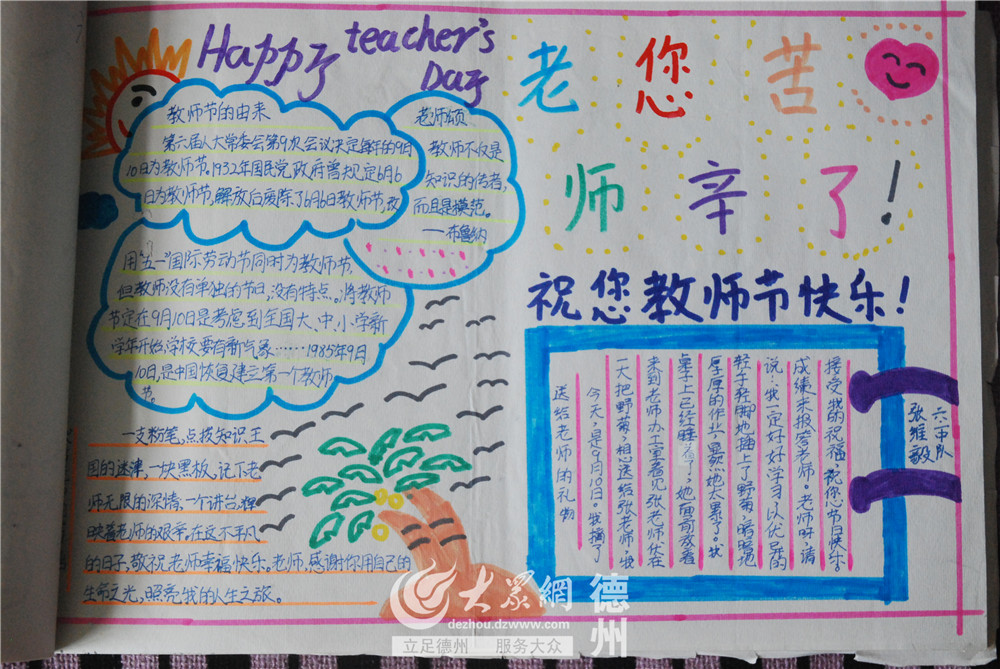 Happy teacher's
Day
老您苦
师辛了!
祝您教师节快乐!
教师节的由来
第六届人大常委会第9次会议决定每年的9月
10日为教师节。1932年国民党政府曾规定6月6
日为教师节,解放后废除了6月6日教师节,改
用"五一"国际劳动节同时为教师节,
但教师没有单独的节日,没有特点。将教师
节定在9月10日是考虑到全国大、中、小学新
学年开始,学校要有新气象……1985年9月
10日,是中国恢复建立第一个教师
节。
老师颂
教师不仅是
知识的传者,
而且是模范。
——布鲁纳
一支粉笔,点拨知识王
国的迷津,一块黑板,记下老
师无限的深情,一个讲台,辉
映着老师的艰辛,在这不平凡
的日子,敬祝老师幸福快乐。老师,感谢你用自己的
生命之光,照亮我的人生之旅。
送给老师的礼物
今天,是9月10日。我摘了
一大把野菊,想送给张老师,我
来到老师办公室看见张老师伏在
桌子上已经睡着了,她面前放着
厚厚的作业,显然她太累了。我
轻手轻脚地插上了野菊,暗暗地
说:我一定好好学习,以优异的
成绩来报答老师。老师呀,请
接受我的祝福,祝您节日快乐
六中队
张维毅
大眾網 德州
dezhou.dzwww.com
立足德州 服务大众